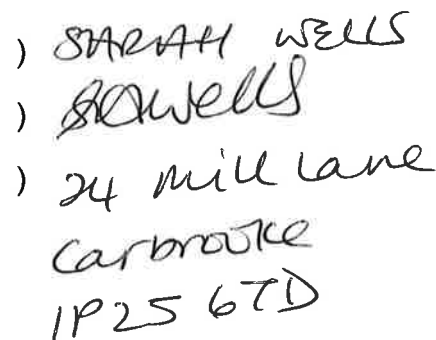 ) SARAH WELLS
) SAWells
) 24 Mill Lane
Carbrooke
IP25 6TD